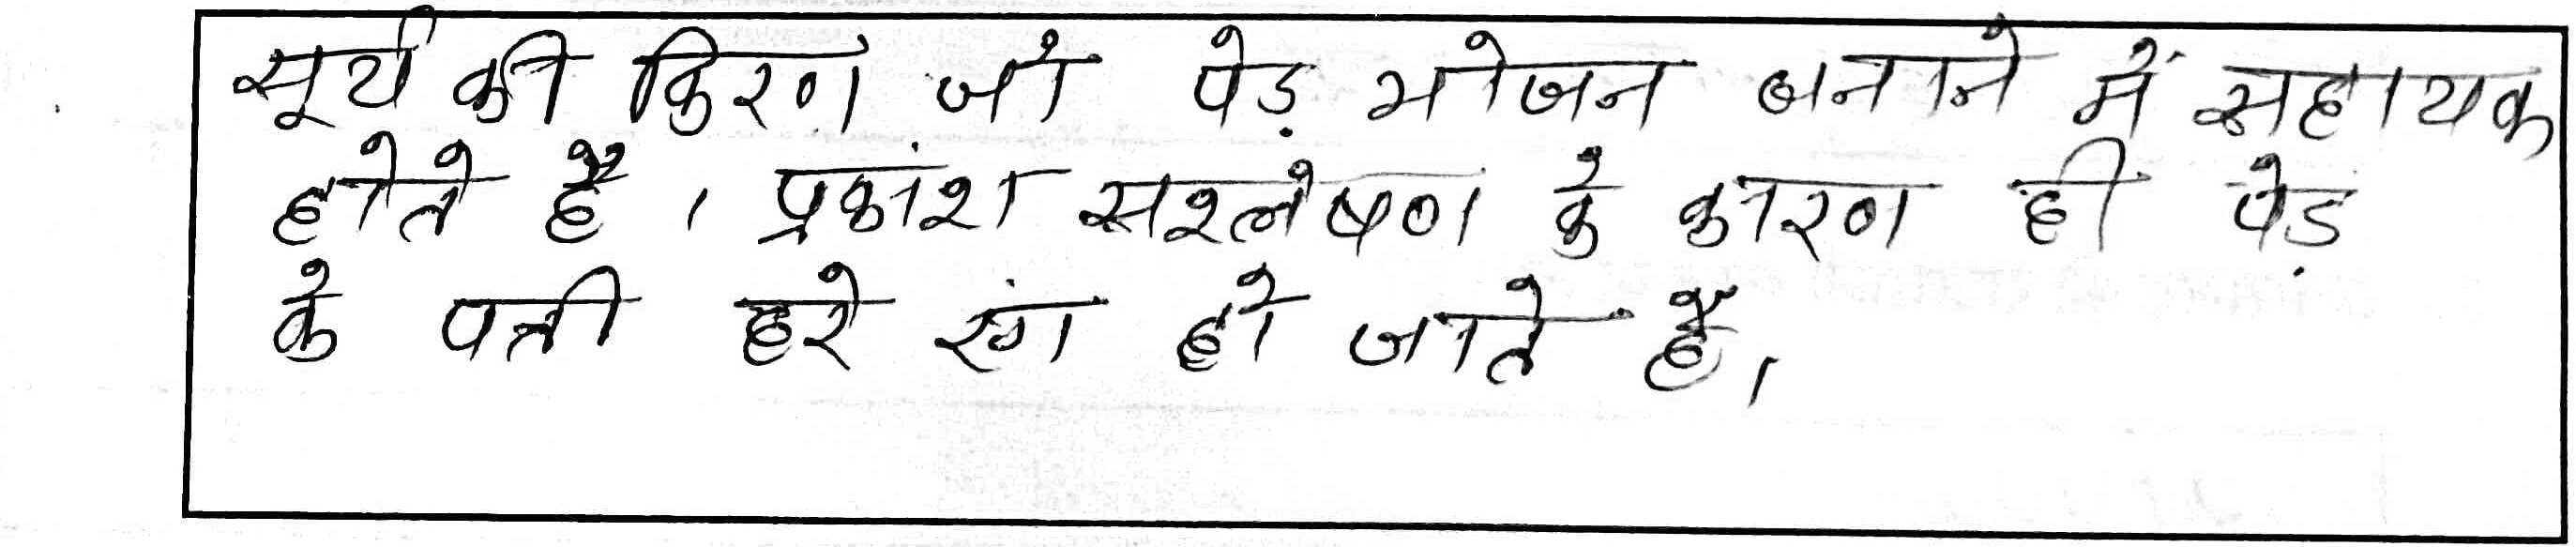 सूर्य की किरण जो पेड़ भोजन बनाने में सहायक
होते है । प्रकांश सश्लेषण के कारण ही पेड़
के पत्ती हरे रंग हो जाते है।